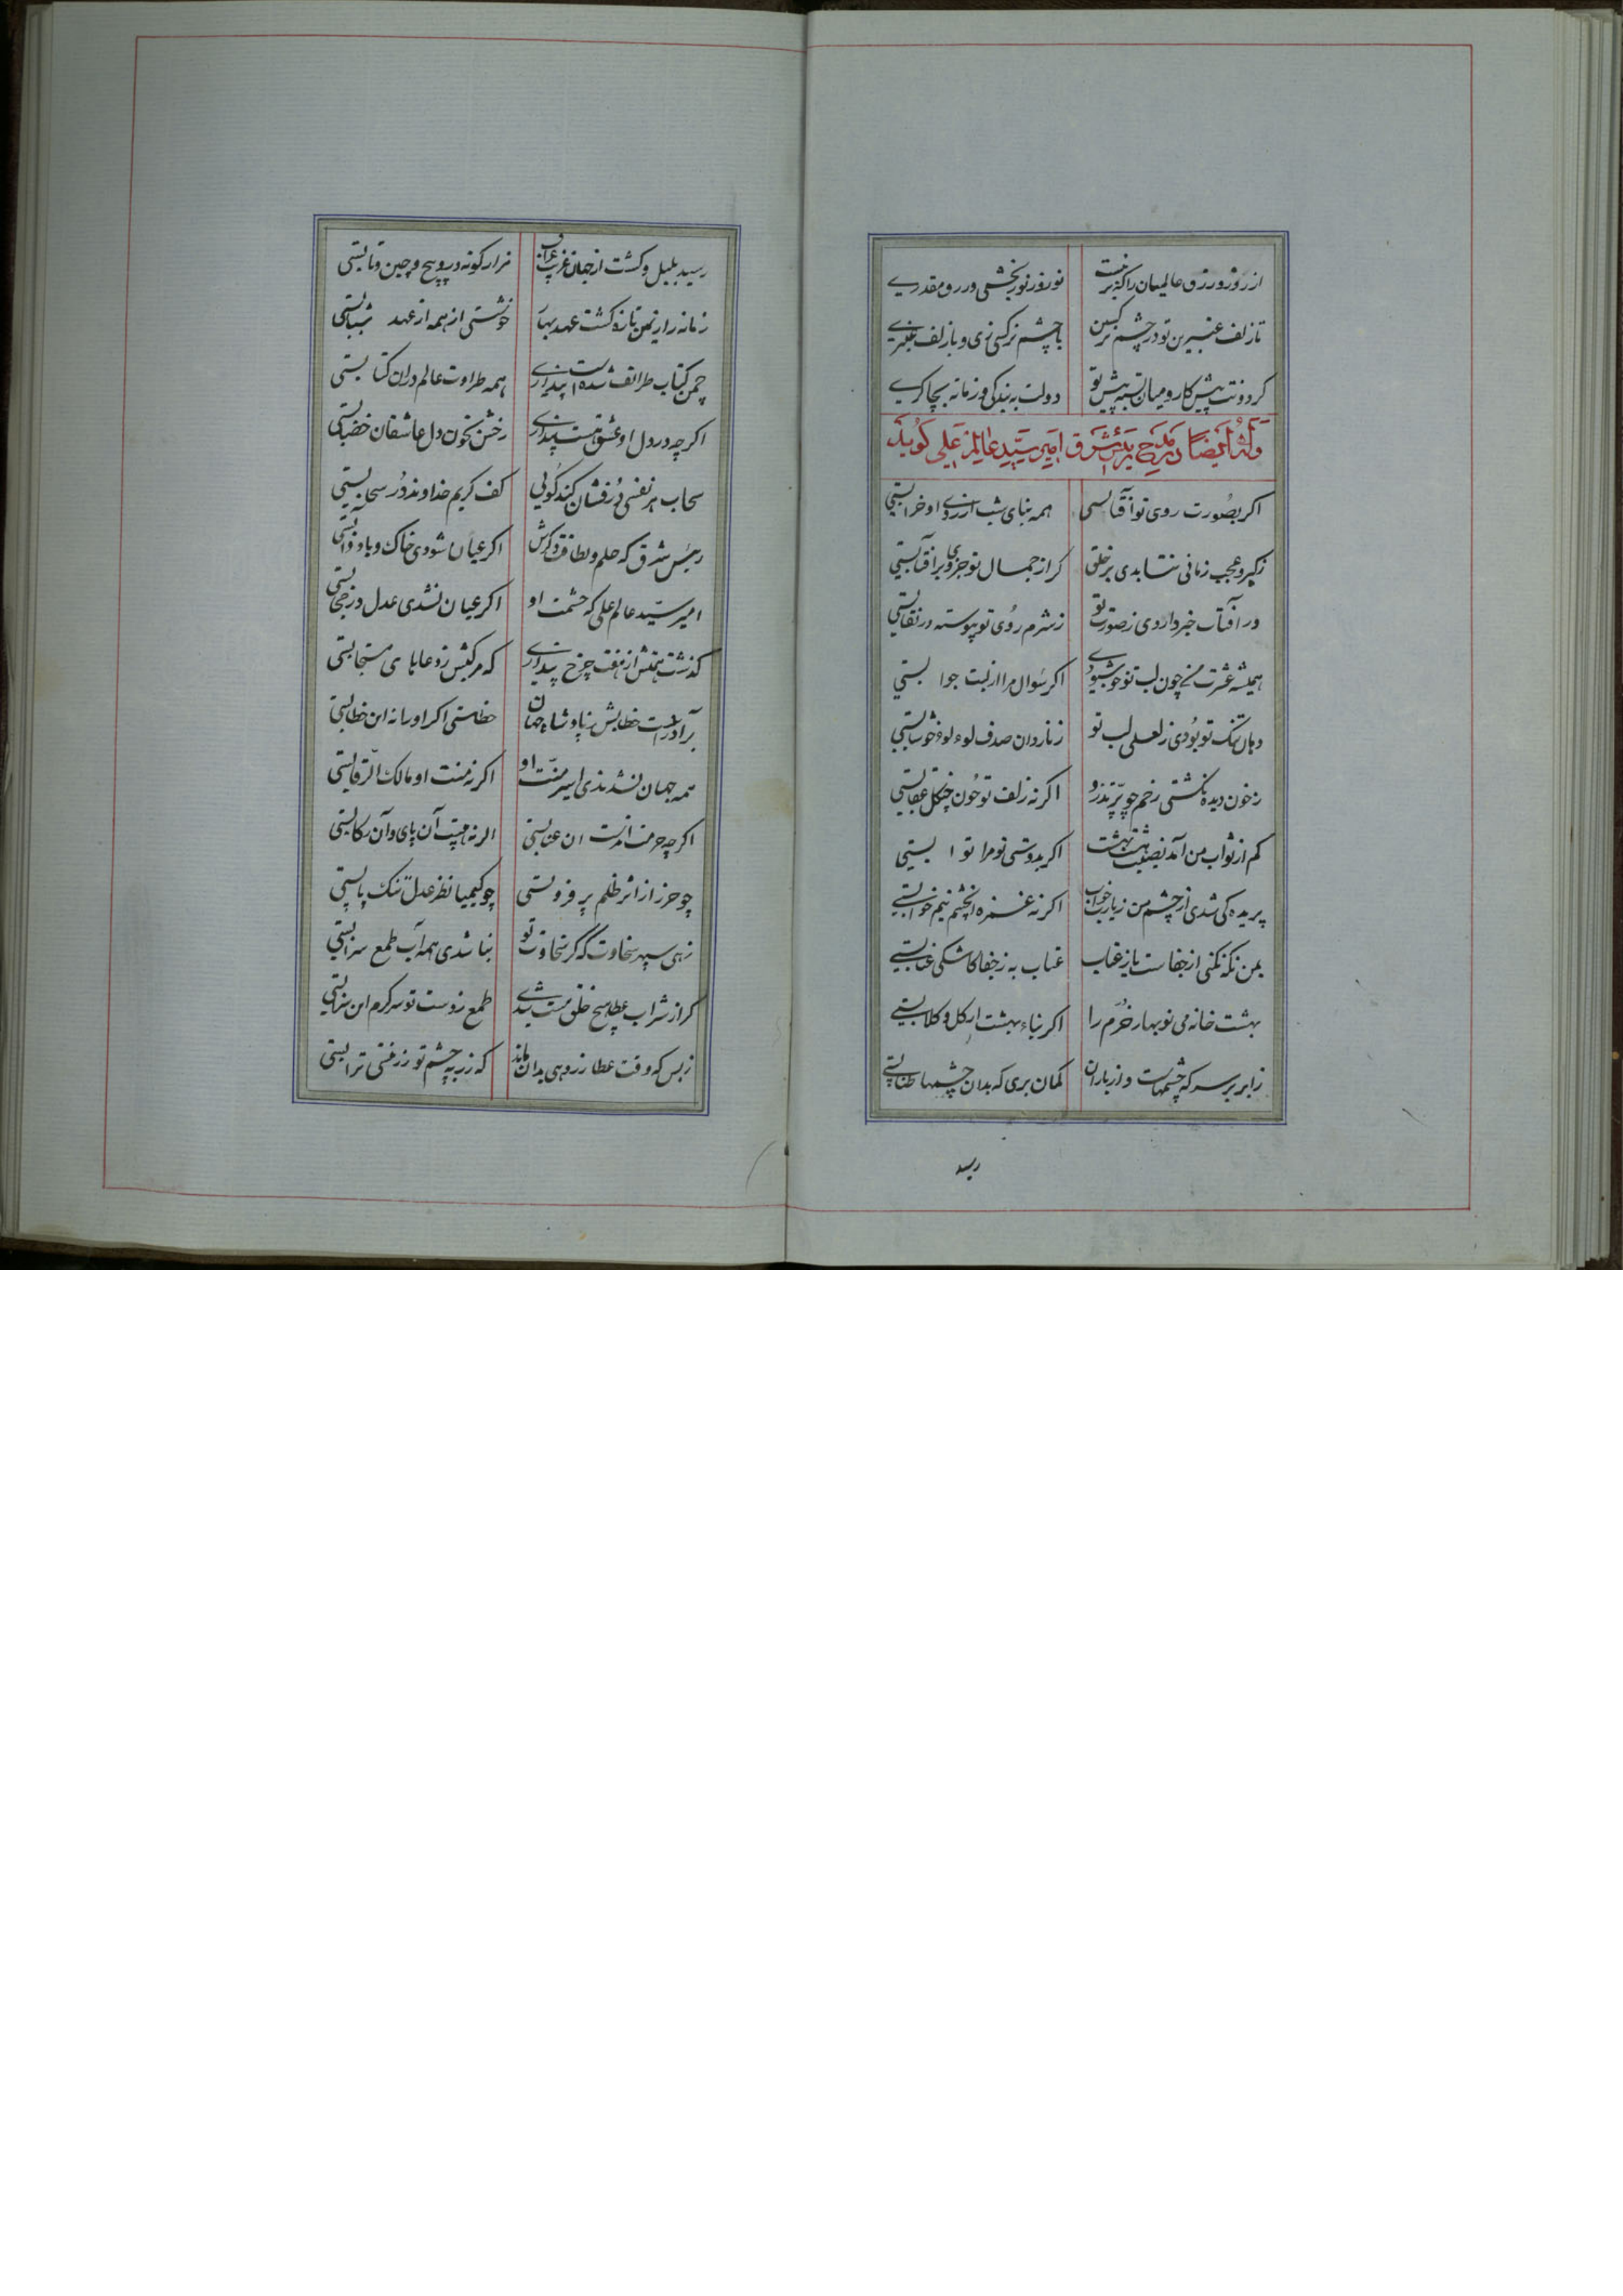 از روز و رزق عالمیان را گزیر نیست نوروز نوربخشی و رزق مقدری
تا زلف عنبرین تو در چشم نرگسین با چشم نرگسی زی و با زلف عنبری
گردونت پیش کار و میان بسته پیش تو دولت به بندگی و زمانه بچاکری
وله ایضا در مدح رئیس شرق امیر سید عالم علی گوید
اگر بصورت روی تو آفتابستی همه بنای شب از روی او خرابستی
ز کبر و عجب زمانی نتابدی بر خلق گر از جمال تو جزوی بر آفتابستی
ور آفتاب خبر داردی ز صورت تو ز شرم روی تو پیوسته در نقابستی
همیشه عشرت من چون لب تو خوش بودی اگر سوال مرا از لبت جوابستی
دهان تنگ تو بودی ز لعل لب تو ز ناردان صدف لولو خوشابستی
ز خون دیده نگشتی رخم چو پر تذرو اگر نه زلف تو چون چنگل عقابستی
کم از ثواب من آمد نصیب هشت بهشت اگر بدوستی تو مرا ثوابستی
پریده کی شدی از چشم من زیارت خواب اگر نه غمزه آن چشم نیم خوابستی
بمن نگه نکنی از جفاست یا ز عتاب عتاب به ز جفا کاشکی عتابستی
بهشت خانه می نوبهار خرم را اگر بناء بهشت از گل و گلابستی
ز ابر بر سر که چشمهاست و از باران گمان بری که بدان چشمها طنابستی
رسید
رسید بلبل و گشت از جهان غریب غراب هزار گونه درو پیچ و چین و تابستی
زمانه را ز یمن تازه گشت عهد بهار خوشستی از همه ار عهد شبابستی
چمن کتاب طرائف شده است پنداری همه طراوت عالم در آن کتابستی
اگر چه در دل او عشق نیست پنداری رخش بخون دل عاشقان خضابستی
سحاب هر نفسی در فشان کند گویی کف کریم خداوند در سحابستی
رئیس شرق که حلم و لطافت و کرمش اگر عیان شودی خاک و باد و آبستی
امیر سید عالم علی که حشمت او اگر عیان نشدی عدل در حجابستی
گذشت همتش از هفت چرخ پنداری که مرکبش ز دعاهای مستجابستی
برآورد است خطابش ز پادشاه جهان خطاستی اگر او را نه این خطابستی
همه جهان نشدندی اسیر منت او اگر نه منت او مالک الرقابستی
چو حرز از اثر ظلم پر فزونستی چو کیمیا نظر عدل تنگ یابستی
زهی سپهر سخاوت که گر سخاوت تو نباشدی همه آب طمع سرابستی
گر از شراب عطا هیچ خلق مست شدی طمع ز دست تو سرگرم این شرابستی
ز بس که وقت عطا زر دهی بدان ماند که زر بچشم تو زر نیستی ترابستی